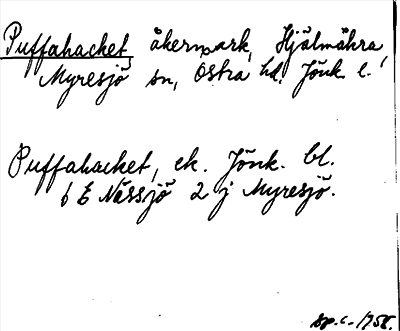 Puffahacket åkermark, Hjälmåhra,
Myresjö sn, Östra hd, Jönk. l.
Puffahacket, ek. Jönk. bl.
6 E Nässjö 2 j Myresjö.
sp.c. 1758.